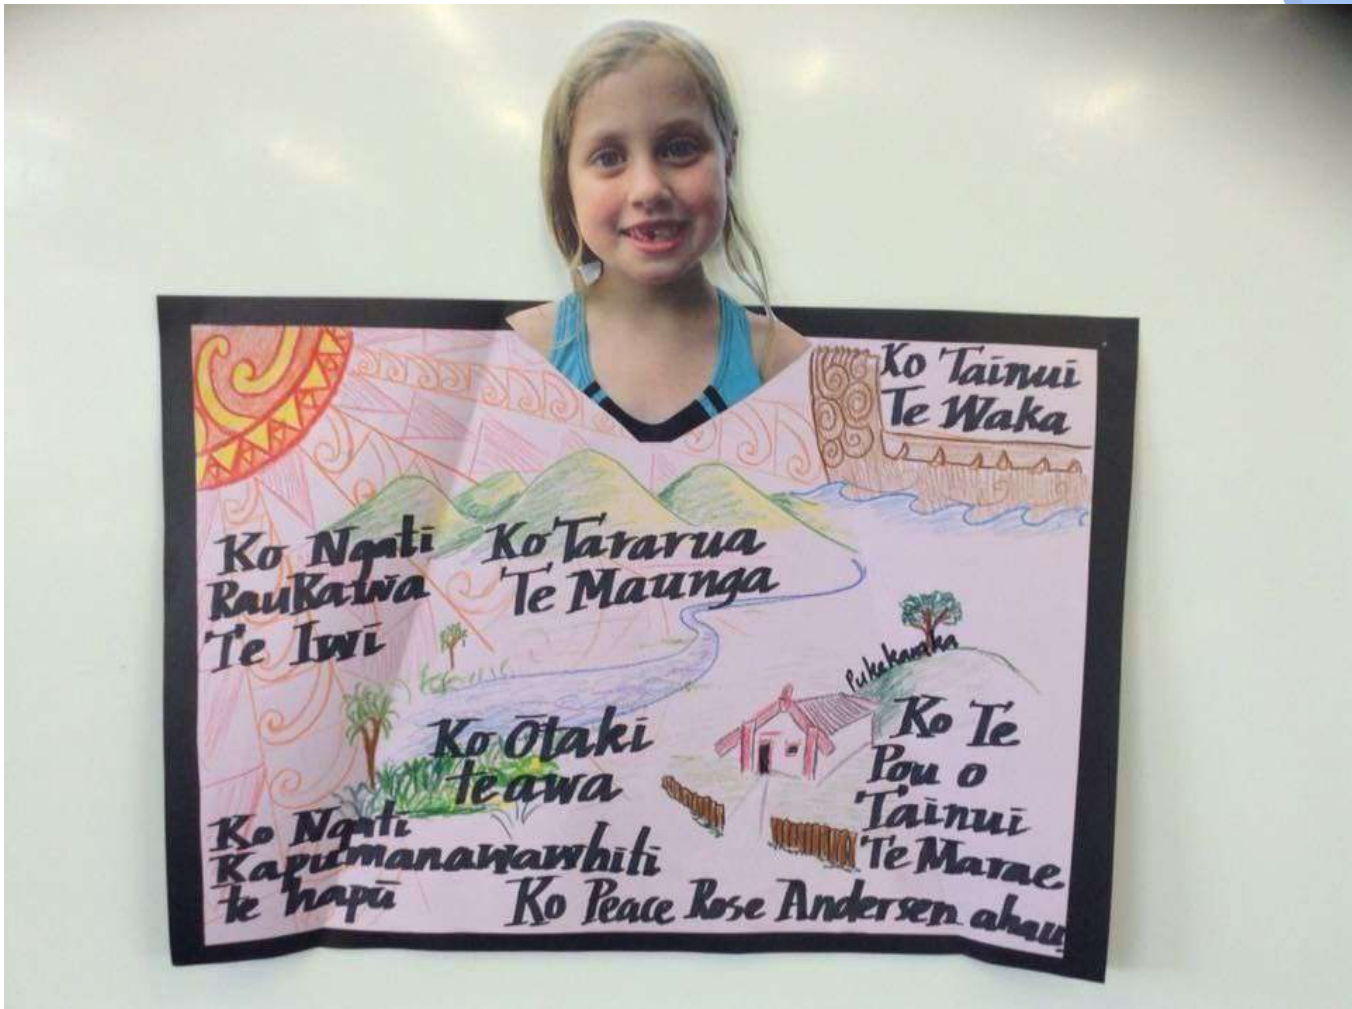 Ko Tainui
Te Waka
Ko Ngati
Raukawa
Te Iwi
Ko Tararua
Te Maunga
Pukekaraka
Ko Ōtaki
te awa
Ko Te
Pou o
Tainui
Te Marae
Ko Ngati
Kapumanawawhiti
te hapū
Ko Peace Rose Andersen ahau